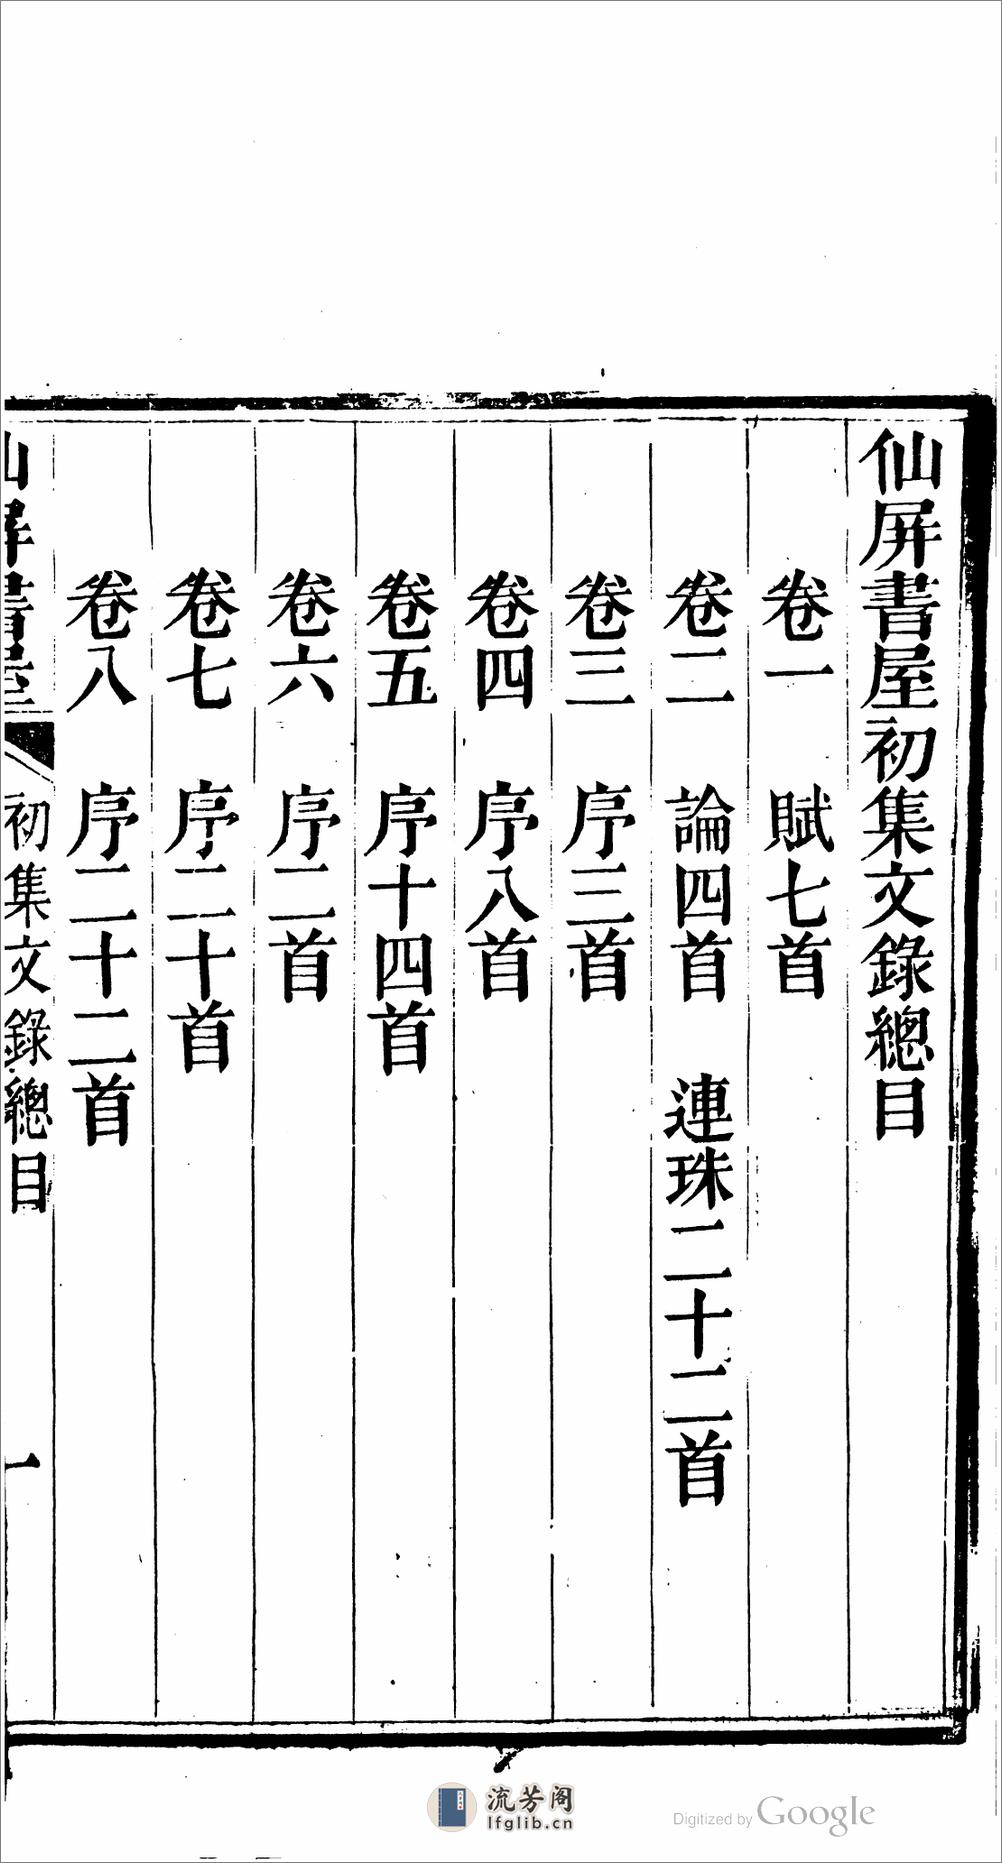 仙屏書屋初集文錄總目
卷一 賦七首
卷二 論四首 連珠二十二首
卷三 序三首
卷四 序八首
卷五 序十四首
卷六 序二首
卷七 序二十首
卷八 序二十二首
仙屏書屋 初集文錄總目 一
流芳阁
lfglib.cn
Digitized by Google